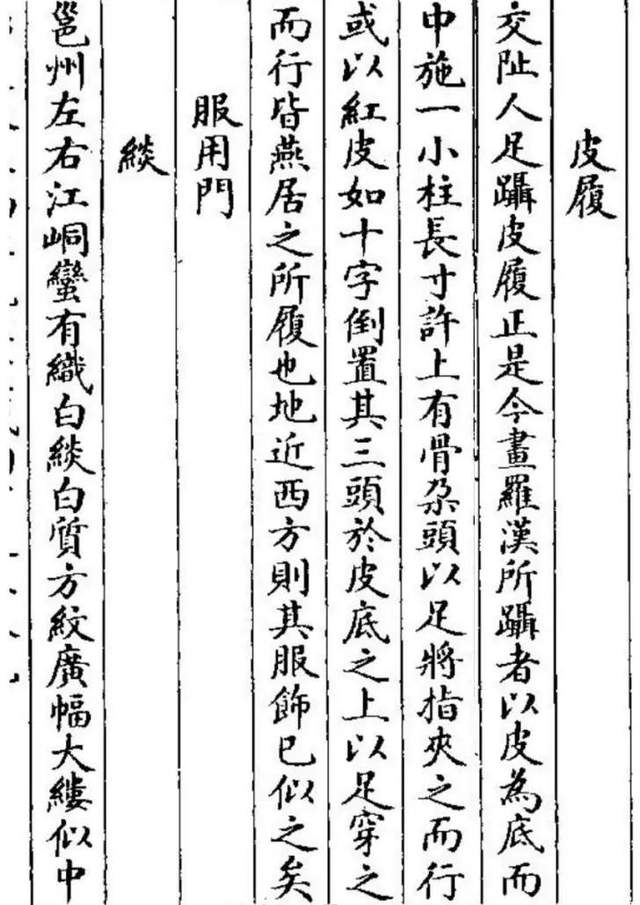 皮履
交阯人足躡皮履正是今畫羅漢所躡者以皮為底而
中施一小柱長寸許上有骨朶頭以足將指夾之而行
或以紅皮如十字倒置其三頭於皮底之上以足穿之
而行皆燕居之所履也地近西方則其服飾已似之矣
服用門
緂
邕州左右江峒蠻有織白緂白質方紋廣幅大縷似中